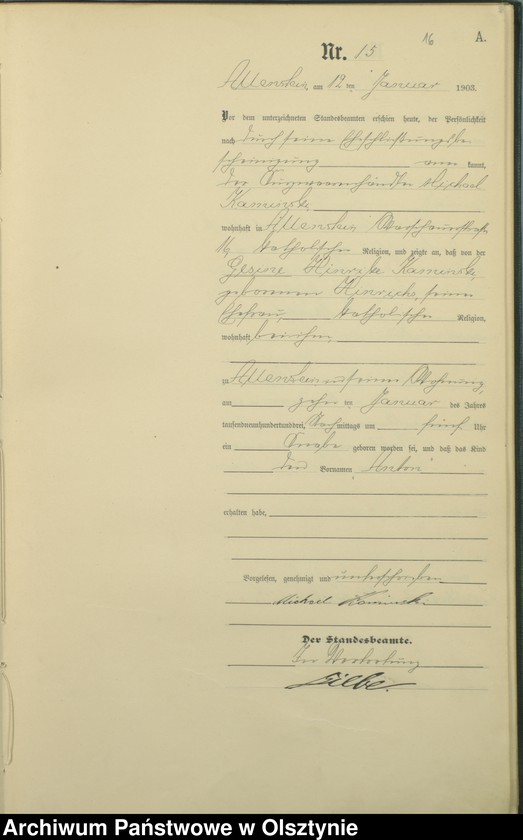 16
A.
Nr. 15
Allenstein, am 12ten Januar 1903.
Vor dem unterzeichneten Standesbeamten erschien heute, der Persönlichkeit
nach durch seine Eheschließungsbe
scheinigung kannt,
der Kurzwarenhändler Michael
Kaminski
wohnhaft in Allenstein Warschauerstraße
16 katholischer Religion, und zeigte an, daß von der
Gesine Hinrike Kaminski,
geborenen Hinrichs, seiner
Ehefrau, katholischer Religion,
wohnhaft bei ihm,
zu Allenstein in seiner Wohnung,
am zehnten Januar des Jahres
tausendneunhundertunddrei, Nachmittags um fünf Uhr
ein Knabe geboren worden sei, und daß das Kind
den Vornamen Anton
erhalten habe,
Vorgelesen, genehmigt und unterschrieben
Michael Kaminski
Der Standesbeamte.
In Vertretung
Archiwum Państwowe w Olsztynie